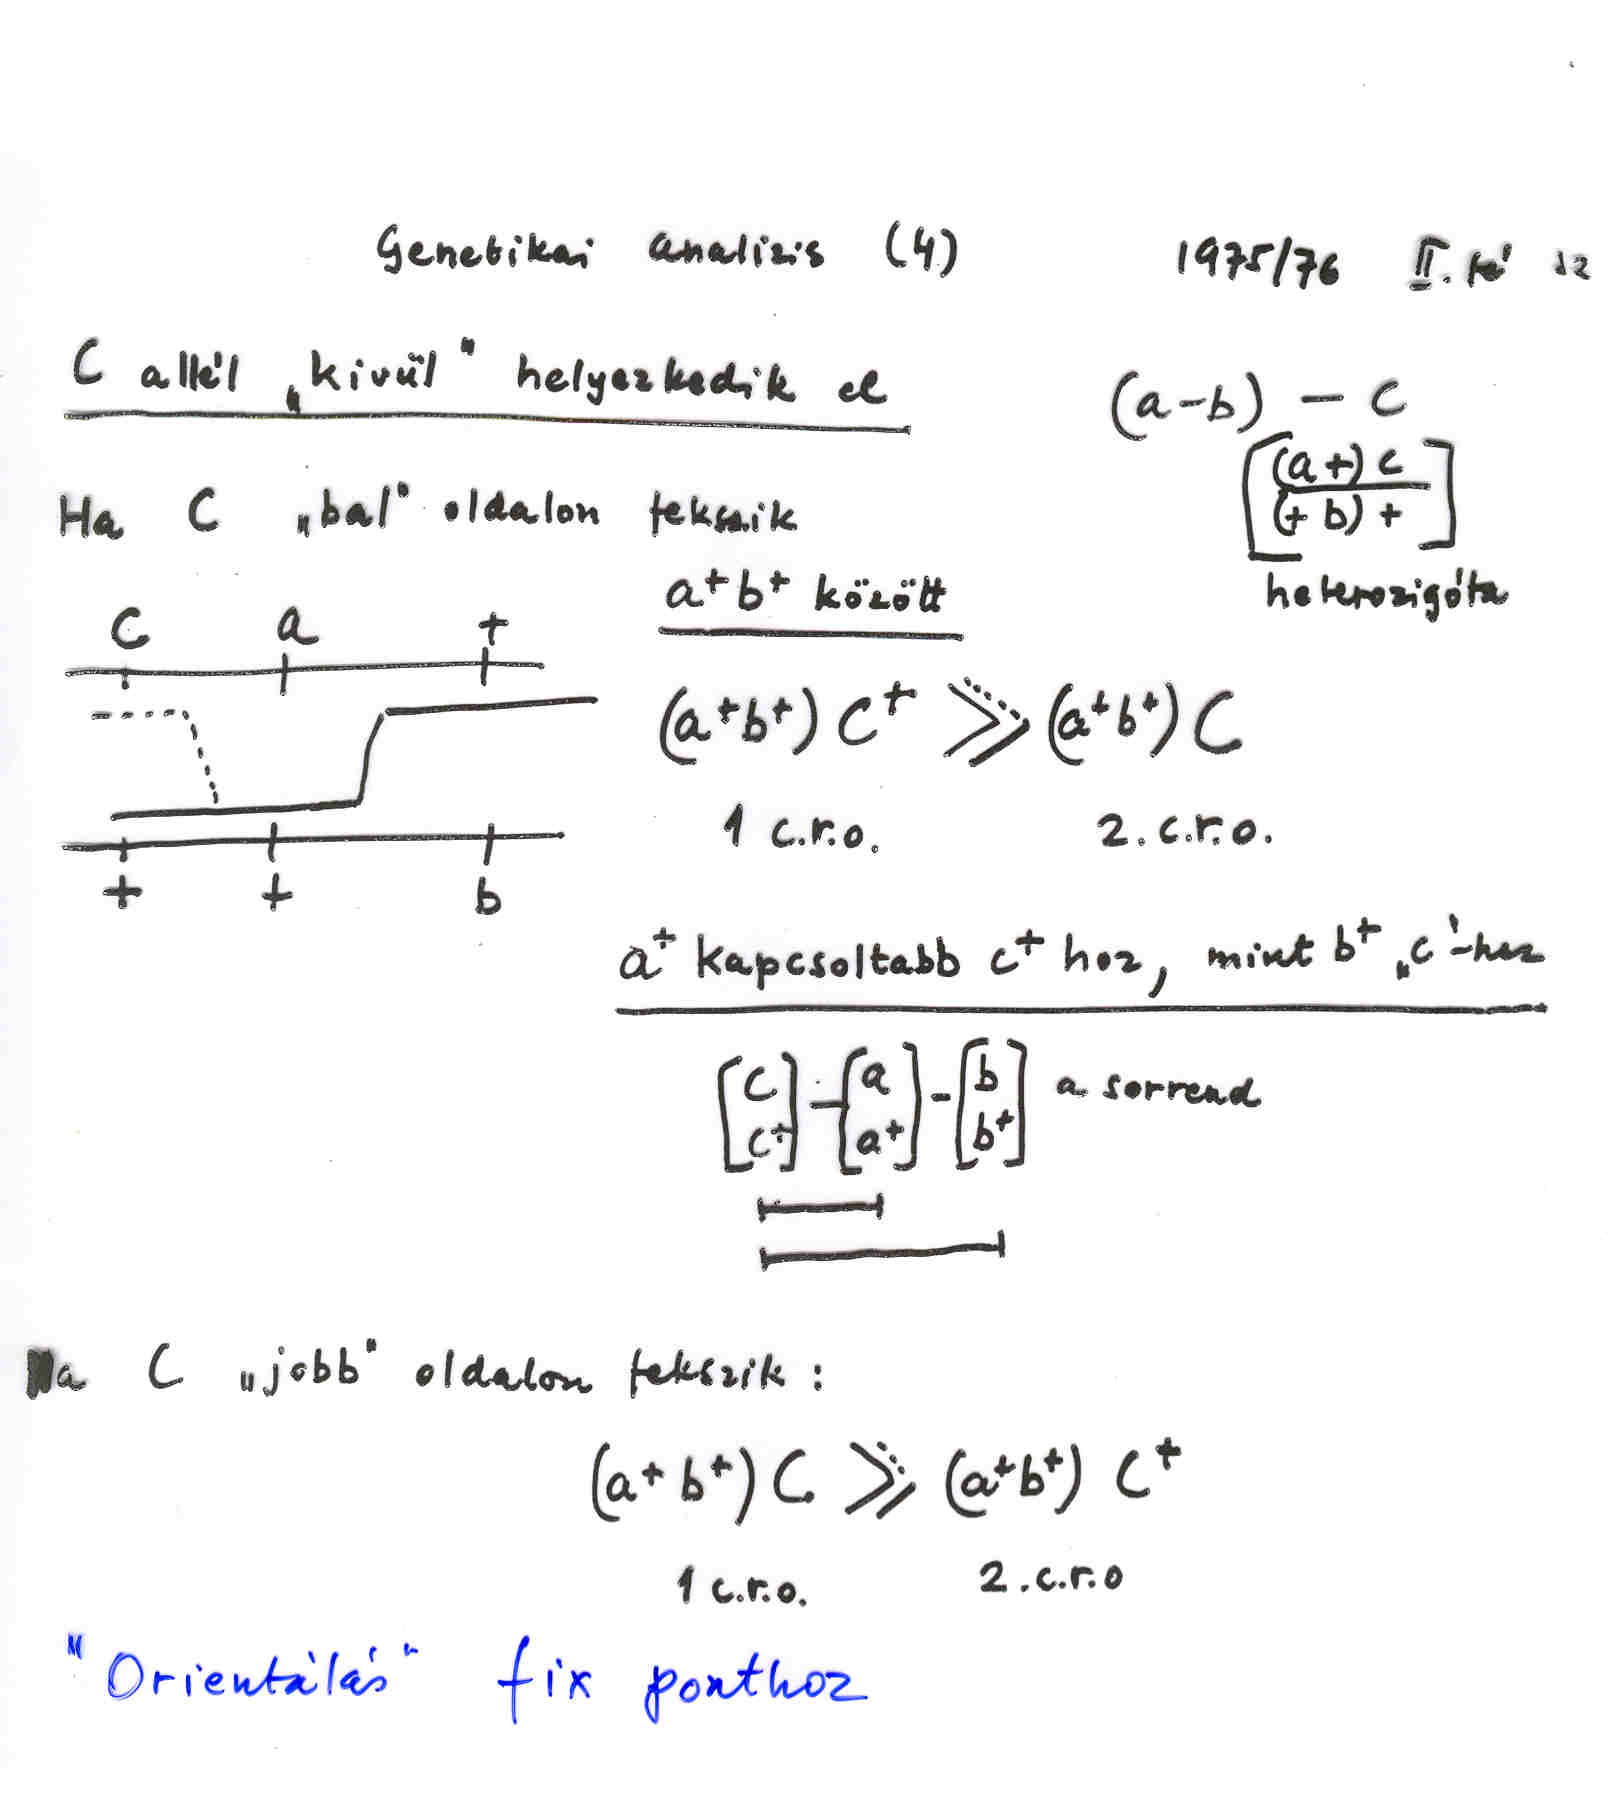 Genetikai analizis (4) 1975/76 II. fé
C allél „kivül" helyezkedik el
(a-b) - c
[(a +) c / (+ b) +]
heterozigóta
Ha C „bal" oldalon fekszik
a⁺b⁺ között
C a +
(a⁺b⁺) C⁺ ⋙ (a⁺b⁺) C
1 c.r.o. 2. c.r.o.
+ + b
a⁺ kapcsoltabb c⁺ hoz, mint b⁺ „c"-hez
[C c⁺] - [a a⁺] - [b b⁺] a sorrend
Ha C „jobb" oldalon fekszik :
(a⁺ b⁺) C ⋙ (a⁺b⁺) C⁺
1 c.r.o. 2. c.r.o
"Orientálás" fix ponthoz